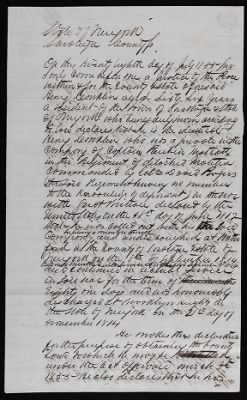 State of New York
Saratoga County ss.
On this twenty eighth day of July 1855 per
sonly came before me a Justice of the Peace
within & for the County & State aforesaid
Henry Conklin aged sixty six years
a resident of the Town of & State
of New York who being duly sworn according
to Law declares that he is the identical
Henry Conklin who was a private in the
Company of Captain
in the Regiment of detached Militia
commanded by Col
Regiment having no number
to the knowledge of deponent in the war
with Great Britain declared by the
United States on the 18th day of June 1812
that he was called out with his
Company and
in the County of Saratoga & State of
New York on the day of September 1814
and continued in actual service
in said war for the term of
and was honourably
discharged at Brooklyn Heights in
the State of New York on the 2d day of
November 1814
He makes this declaration
for the purpose of obtaining the bounty
Land to which he may be
under the act approved March 3d
1855. He also declares that he has